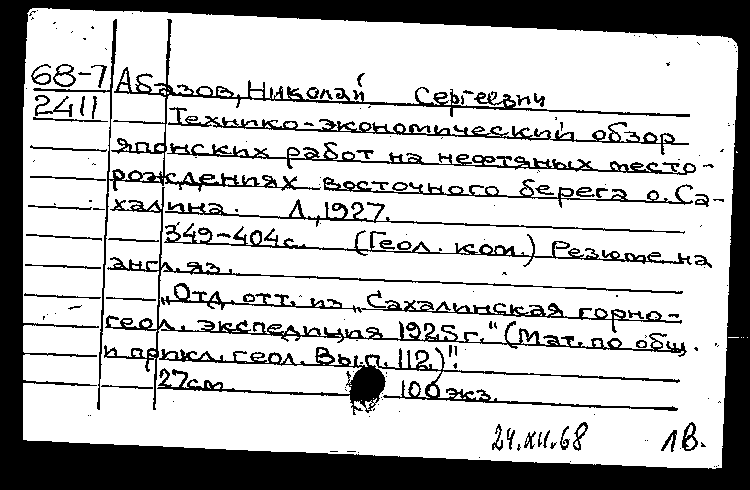 68-7 Абазов, Николай Сергеевич
2411 Технико-экономический обзор
японских работ на нефтяных место-
рождениях восточного берега о. Са-
халина. Л., 1927.
349-404с. (Геол. ком.) Резюме на
англ. яз.
„Отд. отт. из „Сахалинская горно-
геол. экспедиция 1925 г." (Мат. по общ.
и прикл. геол. Вып. 112)".
27см. 100 экз.
24.XII.68 ЛВ.